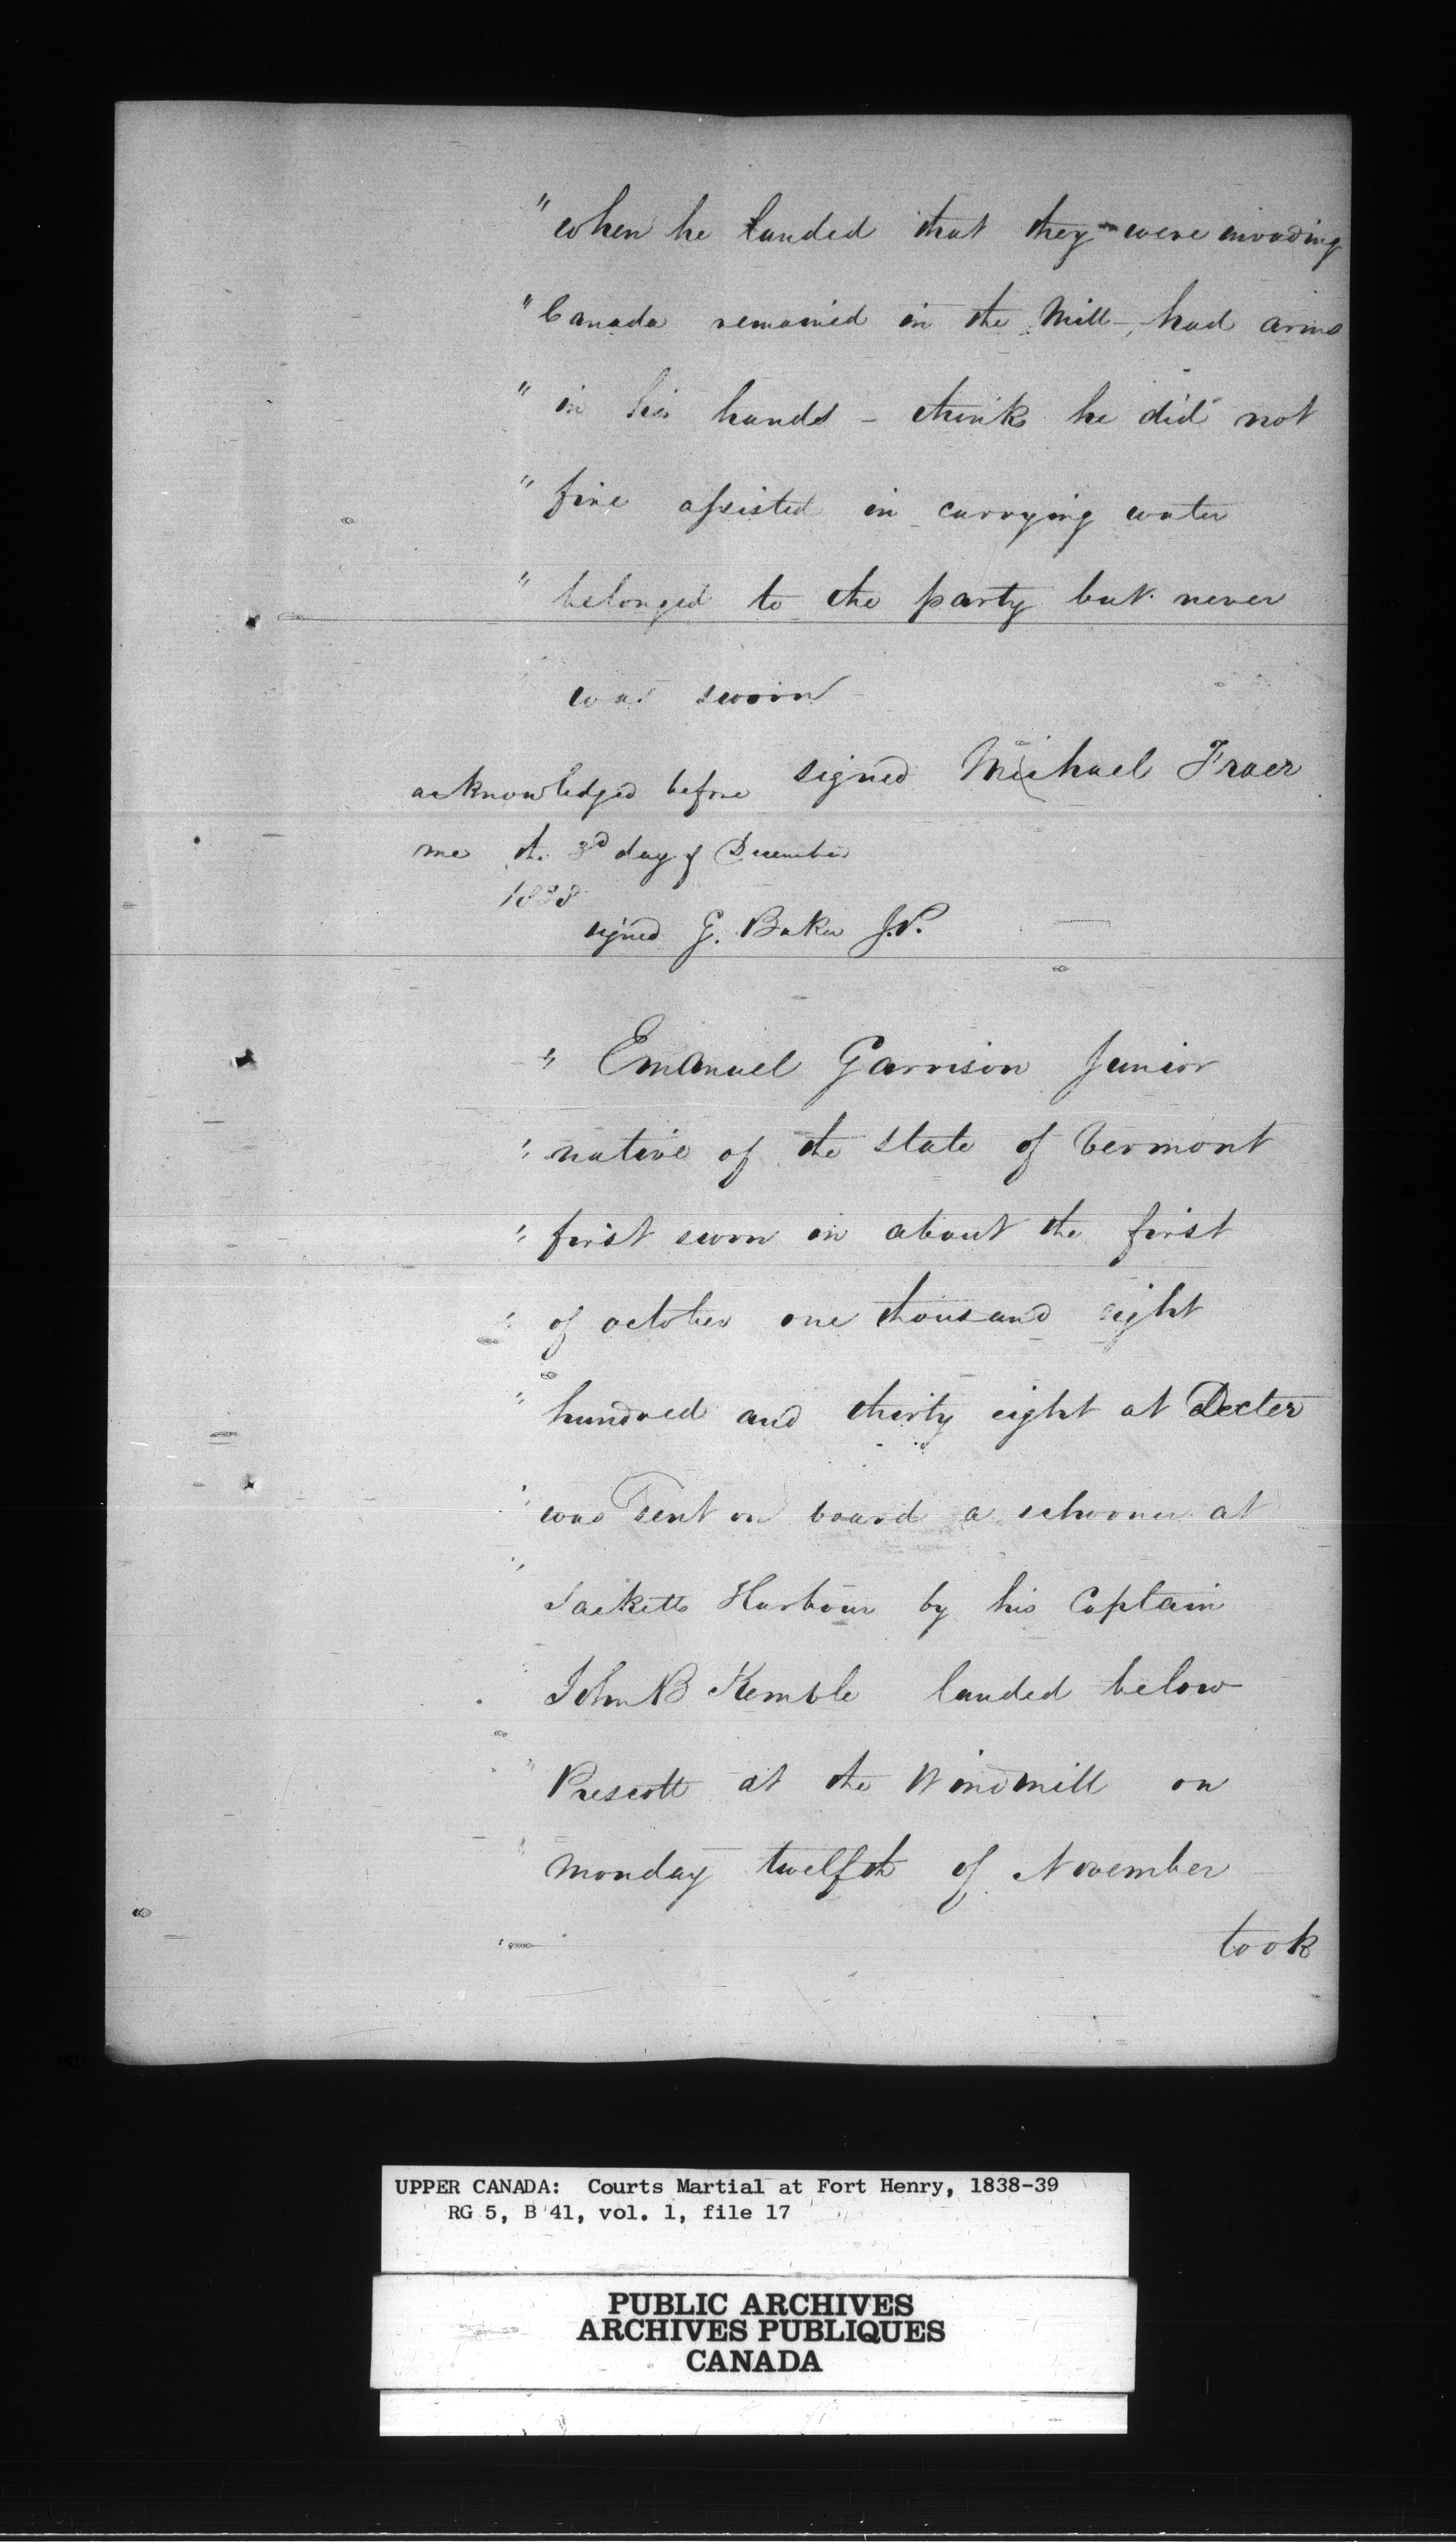 " when he landed that they were invading
" Canada remained in the Mill - had arms
" in his hands - think he did not
" fire assisted in carrying water
" belonged to the party but never
was sworn
signed Michael Fraer
acknowledged before
me the 3d day of December
1838
signed G. Baker J.P.
" Emanuel Garrison Junior
" native of the state of Vermont
" first sworn in about the first
" of october one thousand eight
" hundred and thirty eight at Dexter
" was sent on board a schooner at
" Sacketts Harbour by his Captain
" John B Kemble landed below
" Prescott at the Windmill on
" monday twelfth of November
took
UPPER CANADA: Courts Martial at Fort Henry, 1838-39
RG 5, B 41, vol. 1, file 17
PUBLIC ARCHIVES
ARCHIVES PUBLIQUES
CANADA